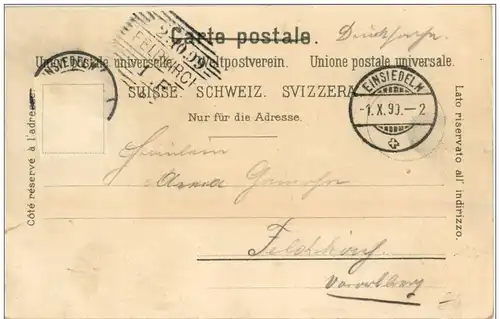 Carte postale. Drucksache
2.10.99
FELDKIRCH
Union postale universelle. Weltpostverein. Unione postale universale.
EINSIEDELN
SUISSE. SCHWEIZ. SVIZZERA.
EINSIEDELN
-1.X.99.-2
Nur für die Adresse.
Côté réservé à l'adresse.
Lato riservato all' indirizzo.
Fräulein
Anna
Feldkirch
Vorarlberg